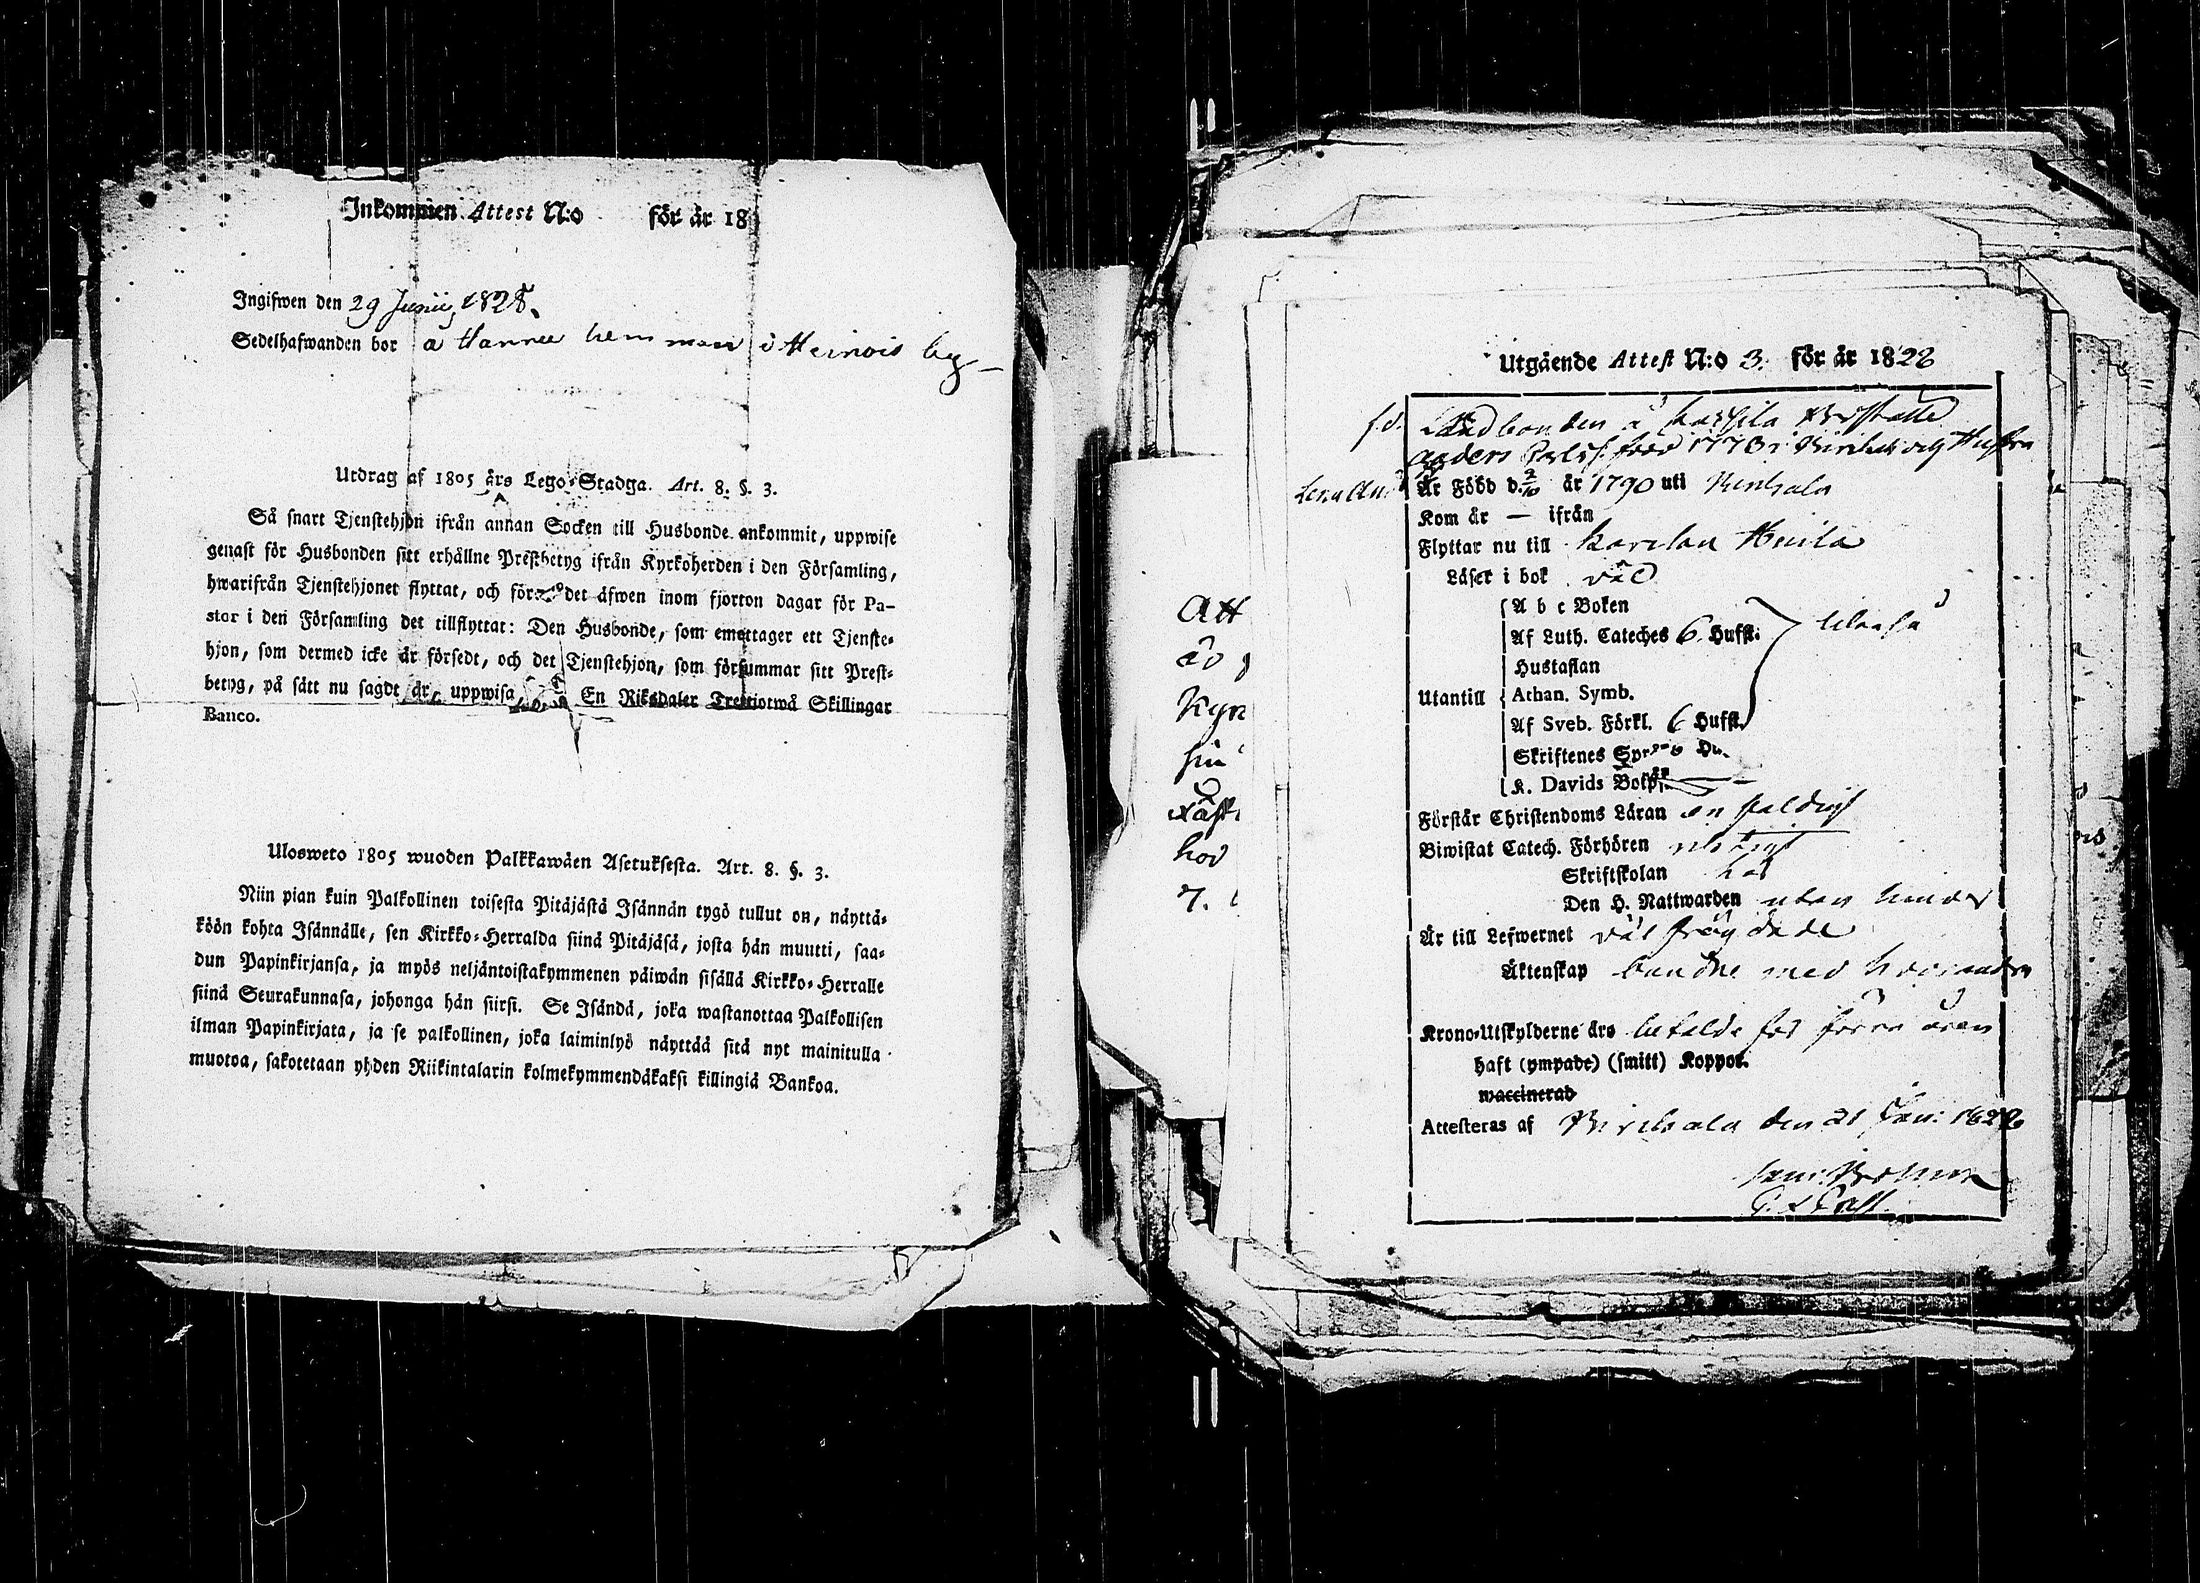 Inkommen Attest N:o för år 18
Ingifwen den 29 Junii 1828.
Sedelhafwanden bor a Hannu hemman i Heinois by
Utdrag af 1805 års Lego-Stadga. Art. 8. §. 3.
Så snart Tjenstehjon ifrån annan Socken till Husbonde ankommit, uppwise
genast för Husbonden sitt erhållne Prestbetyg ifrån Kyrkoherden i den Församling,
hwarifrån Tjenstehjonet flyttat, och före det äfwen inom fjorton dagar för Pa-
stor i den Församling det tillflyttat: Den Husbonde, som emottager ett Tjenste-
hjon, som dermed icke är försedt, och det Tjenstehjon, som försummar sitt Prest-
betyg, på sätt nu sagdt är, uppwisa, En Riksdaler Trettiotwå Skillingar
Banco.
Ulosweto 1805 wuoden Palkkawäen Asetuksesta. Art. 8. §. 3.
Niin pian kuin Palkollinen toisesta Pitäjästä Isännän tygö tullut on, näyttä-
köön kohta Isännälle, sen Kirkko-Herralda siinä Pitäjäsä, josta hän muutti, saa-
dun Papinkirjansa, ja myös neljäntoistakymmenen päiwän sisällä Kirkko-Herralle
siinä Seurakunnasa, johonga hän siirsi. Se Isändä, joka wastanottaa Palkollisen
ilman Papinkirjata, ja se palkollinen, joka laiminlyö näyttää sitä nyt mainitulla
muotoa, sakotetaan yhden Riikintalarin kolmekymmendäkaksi killingiä Bankoa.
Att
Kyr
hov
7.
Utgående Attest N:o 3. för år 1828
f.d. Landbonden å
Anders född 1778 i Hustru
Är Född d. 2/10 år 1790 uti Virtsala
Kom år — ifrån
Flyttar nu till Karelan Heinla
Läser i bok väl
A b c Boken
Af Luth. Cateches 6 Hufst.
Hustaflan
Utantill Athan. Symb.
Af Sveb. Förkl. 6 Hufst.
Skriftenes
K. Davids
Förstår Christendoms Läran enfaldigt
Biwistat Catech. Förhören
Skriftskolan
Den H. Nattwarden utan hinder
Är till Lefwernet väl frägdade
Äktenskap bundne med hvarandra
Krono-Utskylderne års betalde för förra åren
haft (ympade) (smitt) Koppor.
waccinerad
Attesteras af Virtsala den 21 Jan: 1828